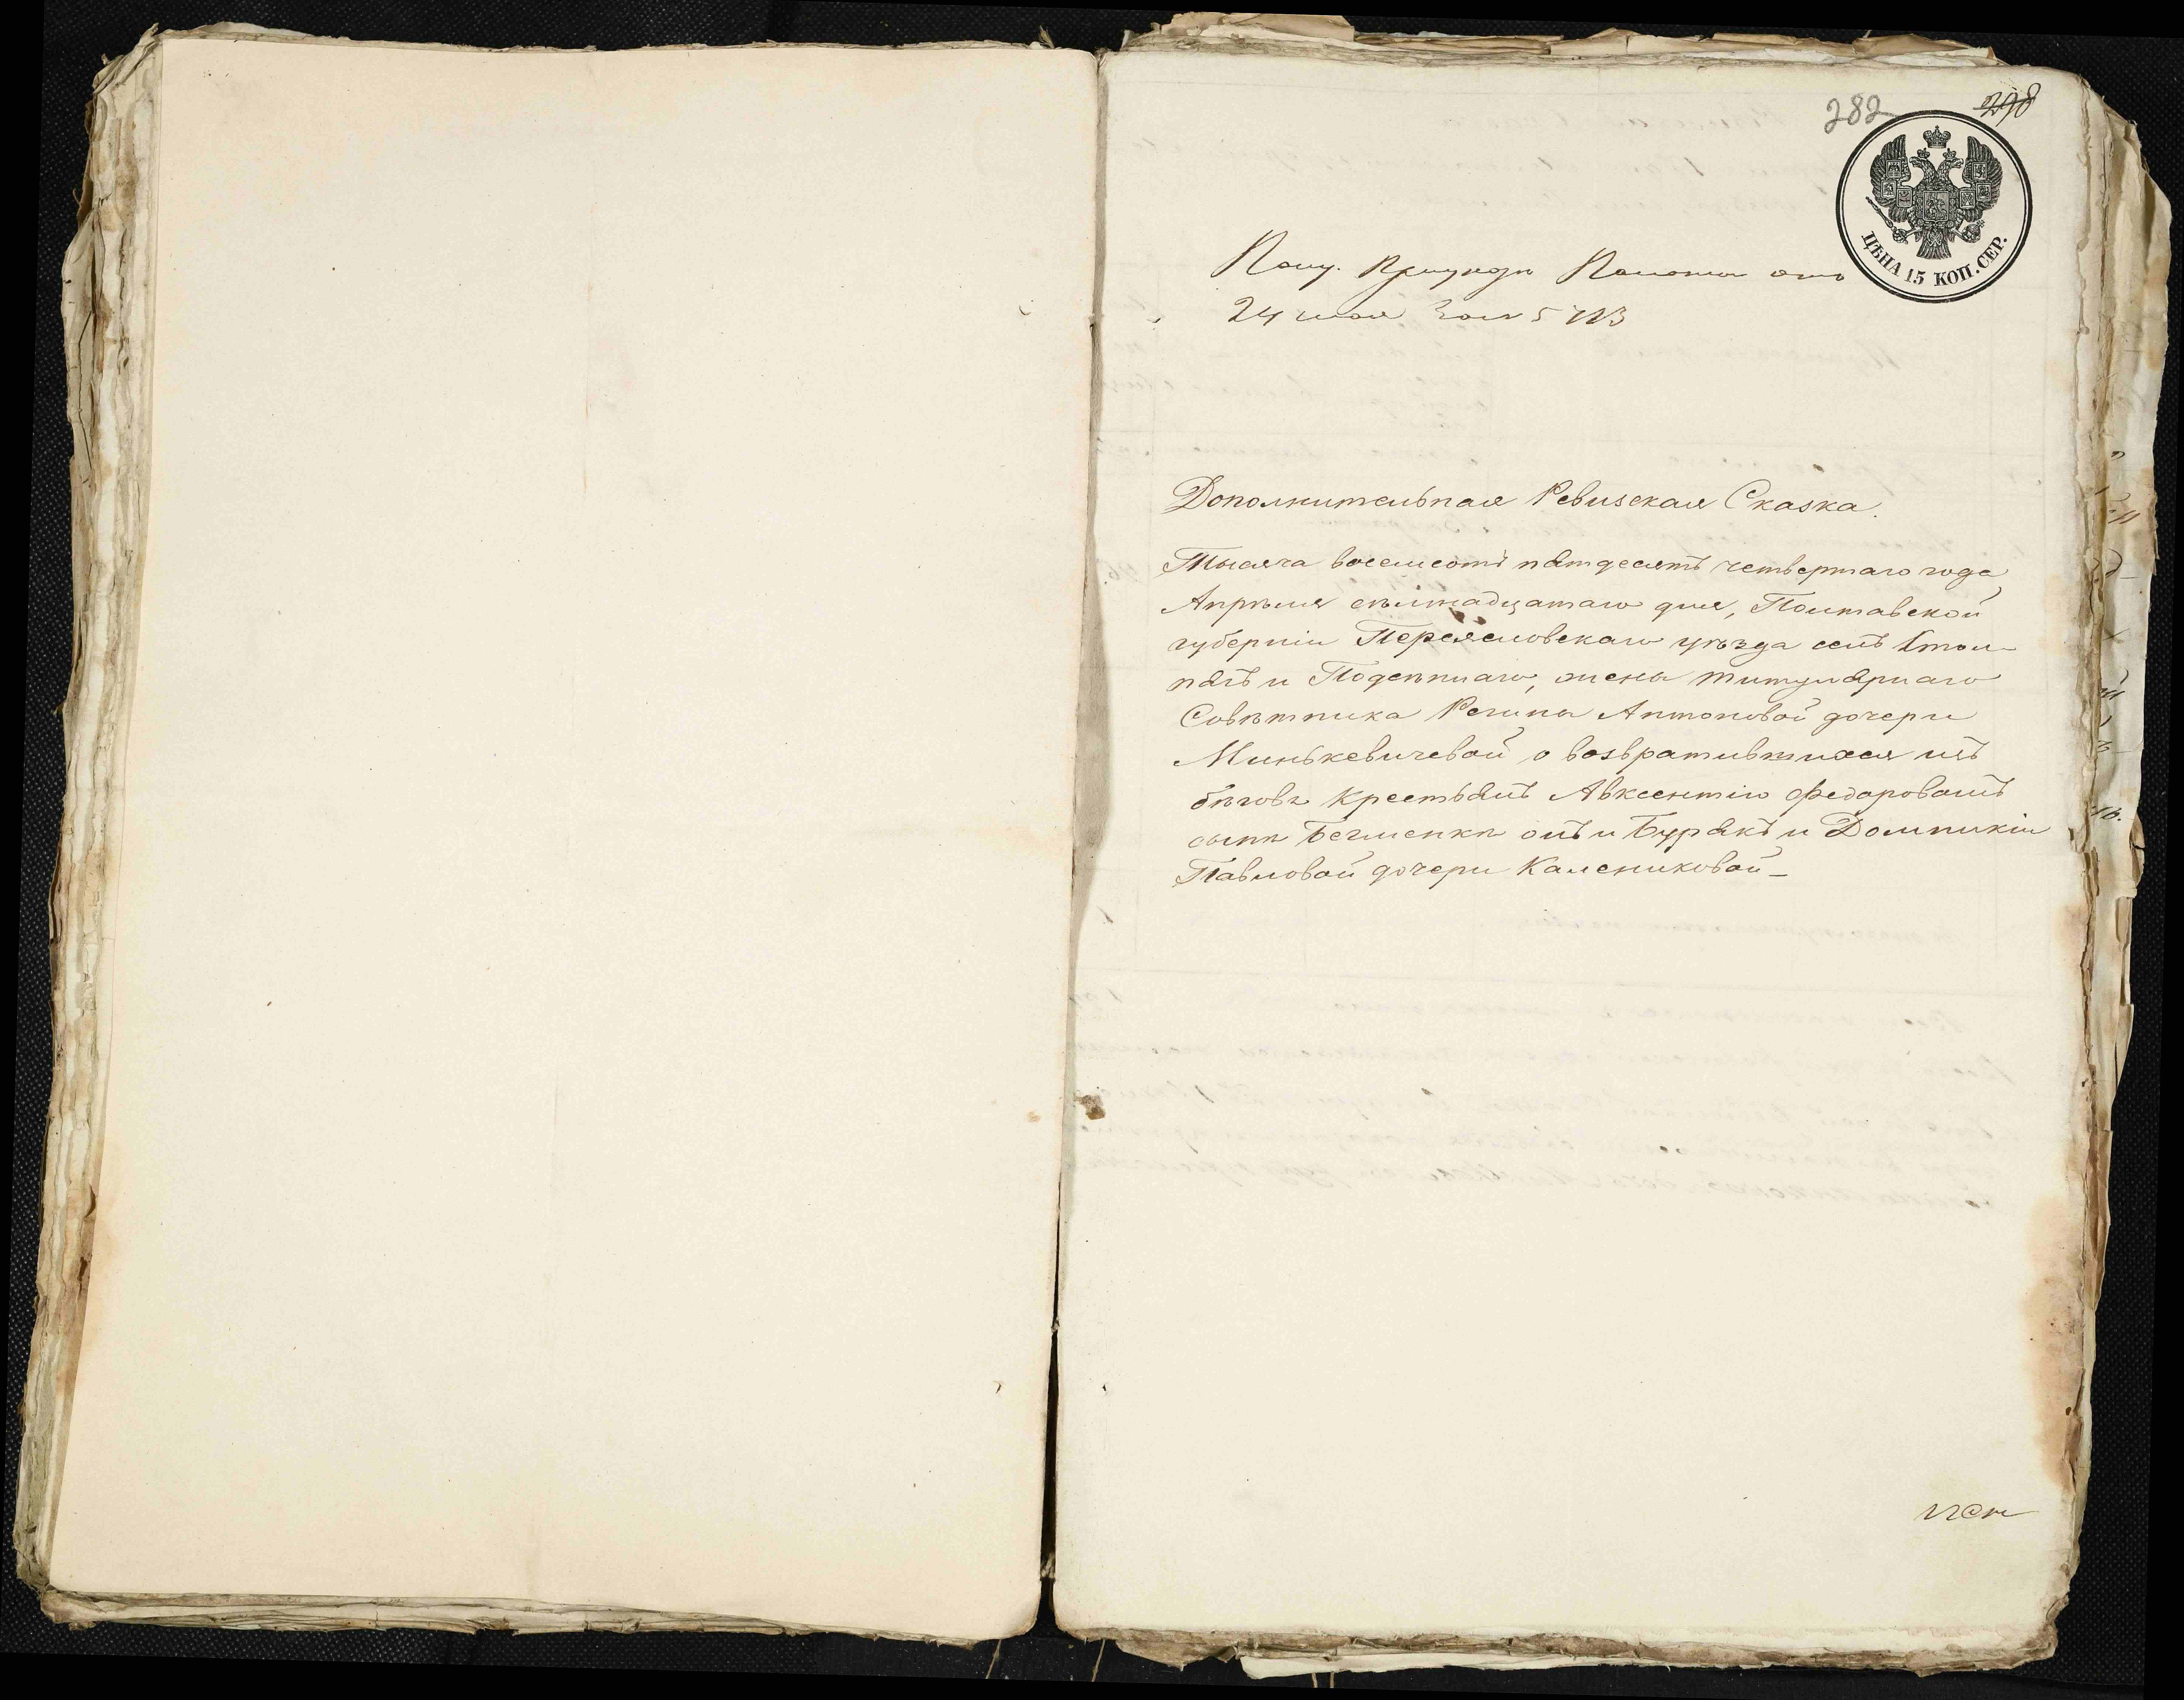 282 298
ЦѢНА 15 КОП. СЕР.
Полу. Палаты отъ
24 мая за № 5113
Дополнительная Ревизская Сказка.
Тысяча восемсотъ пятдесятъ четвертаго года
Апрѣля семнадцатаго дня, Полтавской
губерніи Переясловскаго уѣзда селъ Стол-
пягъ и Подсѣннаго, жены титулярнаго
Совѣтника Регины Антоновой дочери
Минькевичевой о возвратившихся изъ
бѣговъ крестьянъ Авксентію Федоровомъ
сынѣ Бегменкѣ онъ и Бурякъ и Домникіи
Павловой дочери Калениковой –